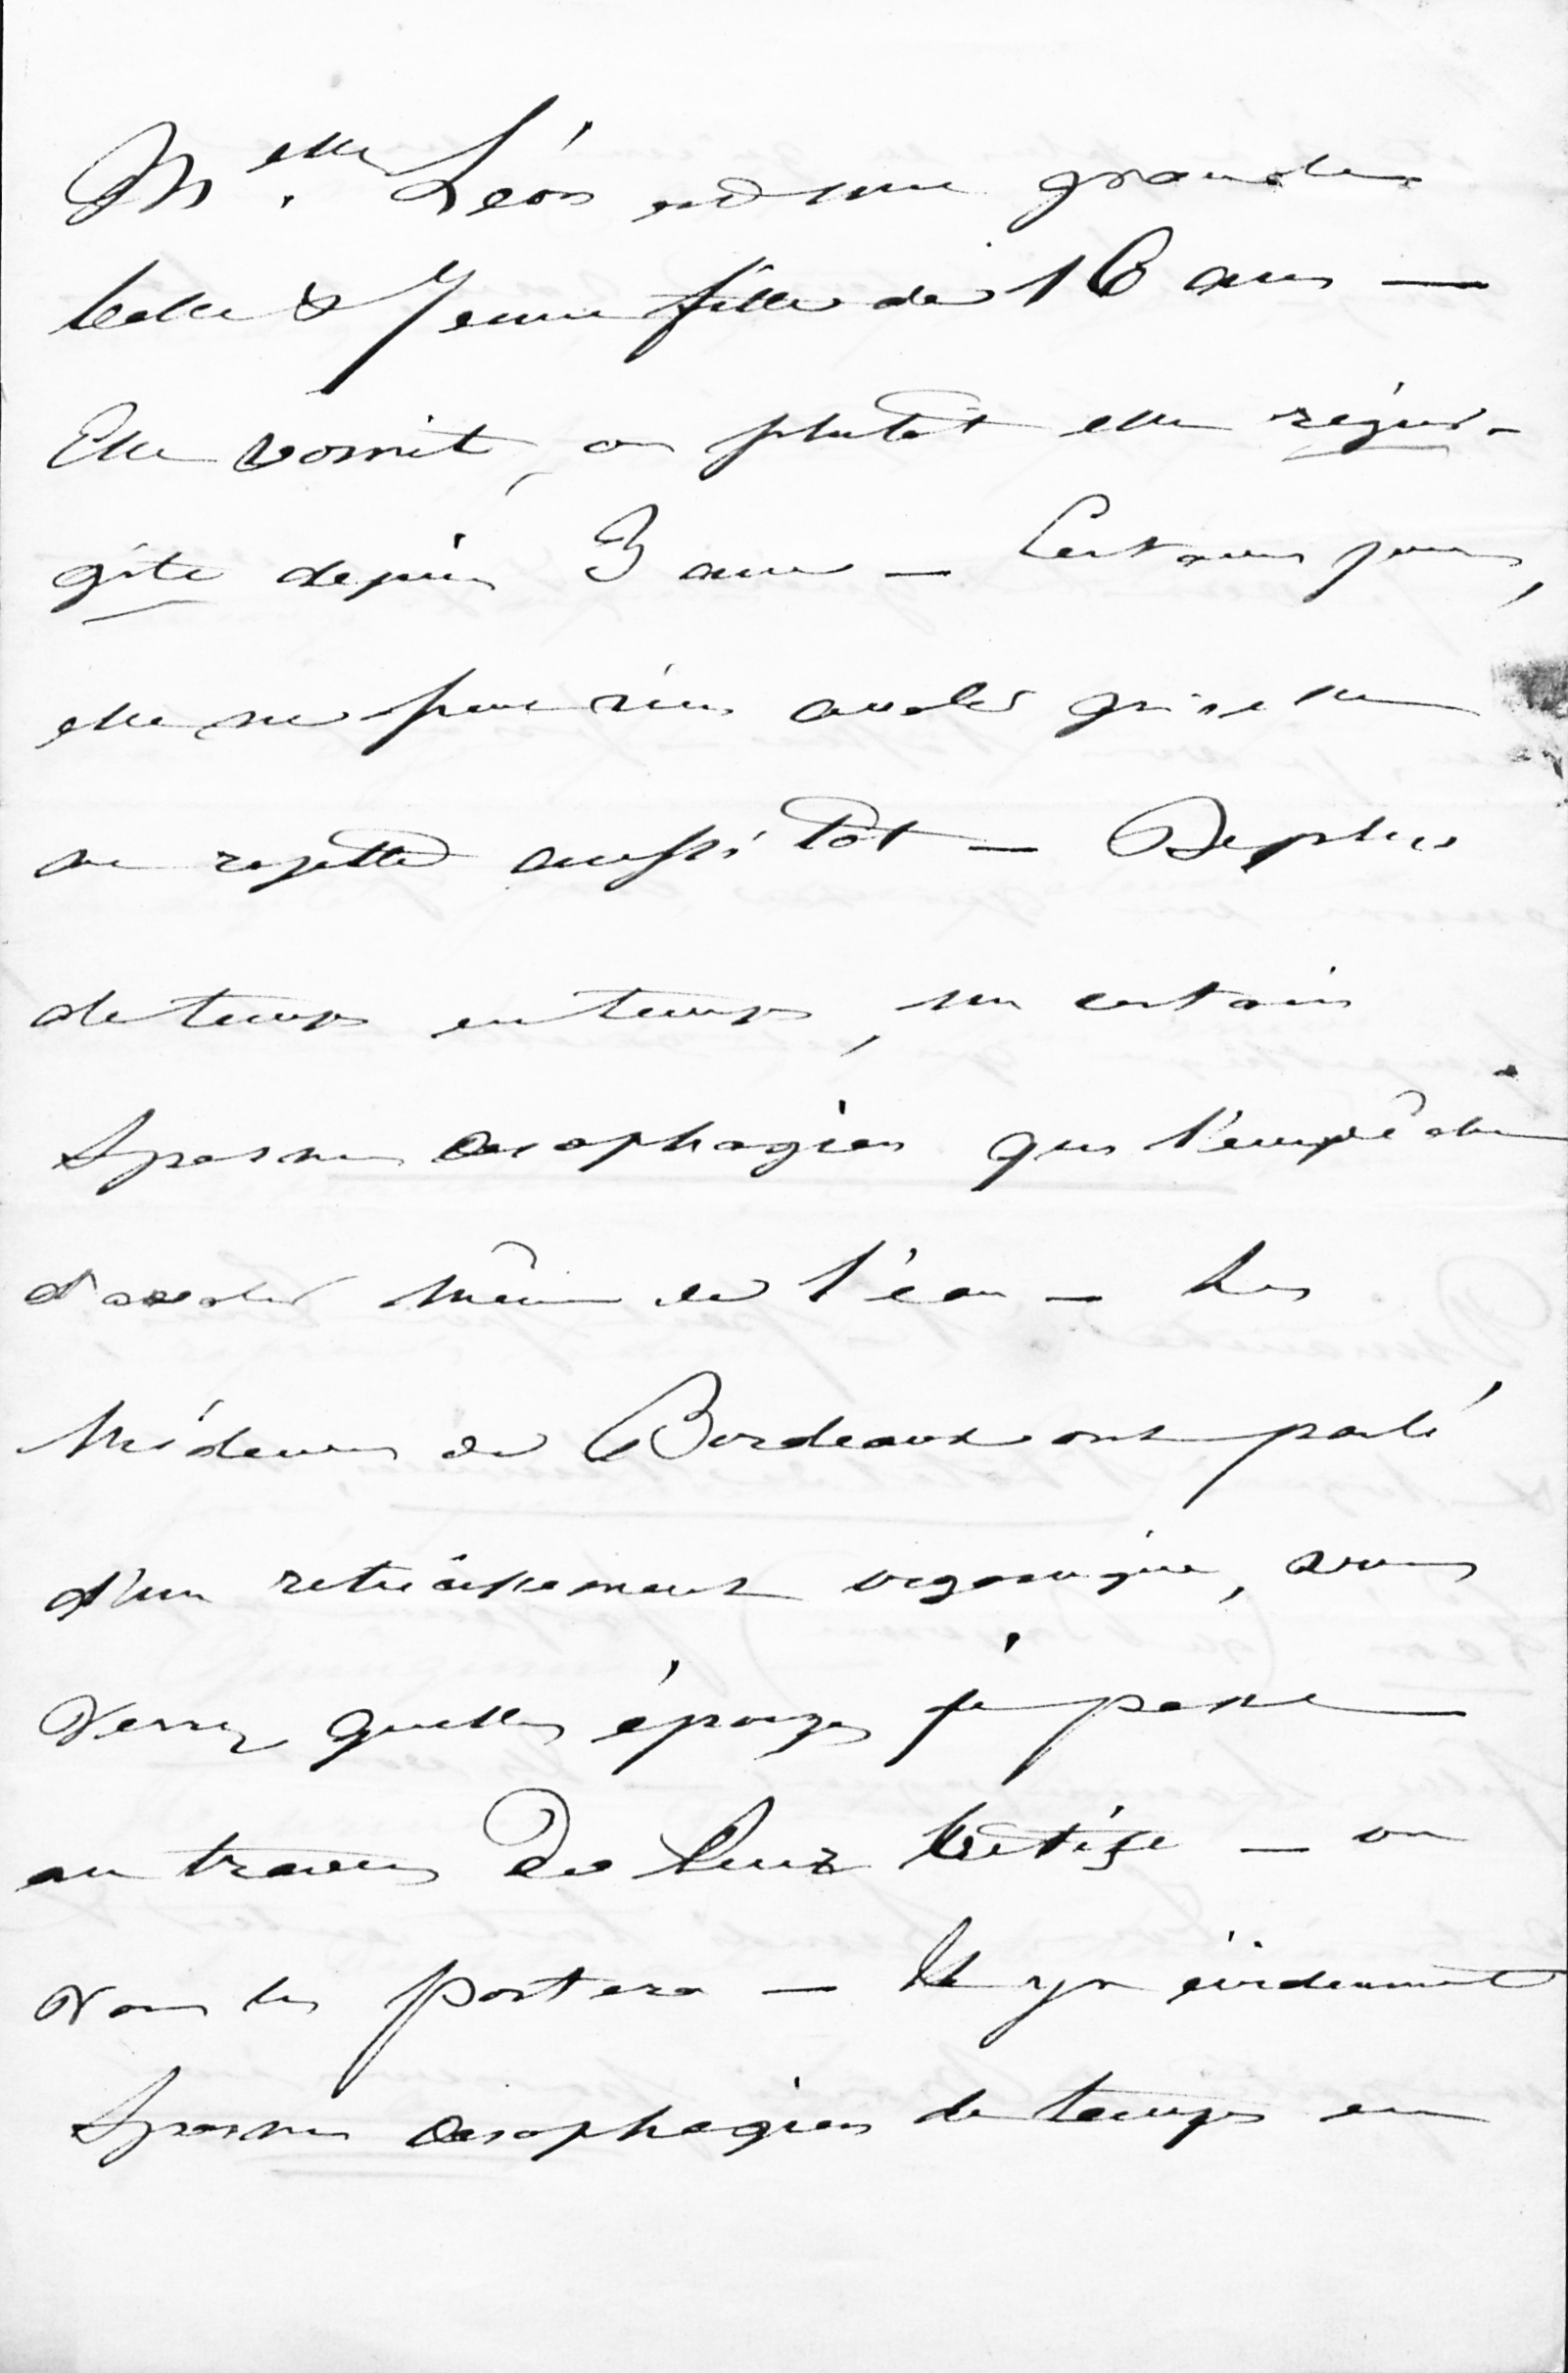 Melle. Léon est une grande
belle & jeune fille de 16 ans —
Elle vomit, ou plutôt elle régur-
gite depuis 3 ans — Certains jours,
elle ne peut rien avaler qu'elle
ne rejette aussitôt — De plus
de temps en temps, un certain
Spasme œsophagien qui l'empêche
d'avaler même de l'eau — Les
Médecins de Bordeaux ont parlé
d'un rétrécissement organique, vous
verrez quelles éponges je passe
au travers de leur bêtise — on
vous les portera — Il y a évidemment
Spasme œsophagien de temps en